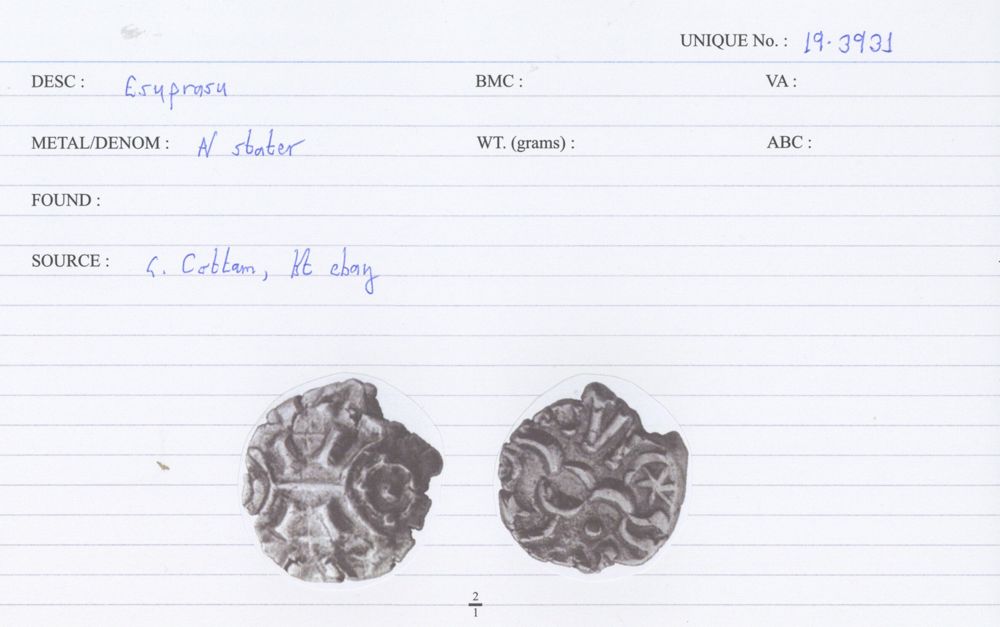 UNIQUE No. : 19.3931
DESC : Esuprasu BMC : VA :
METAL/DENOM : N stater WT. (grams) : ABC :
FOUND :
SOURCE : G. Cottam, Kt ebay
2
1